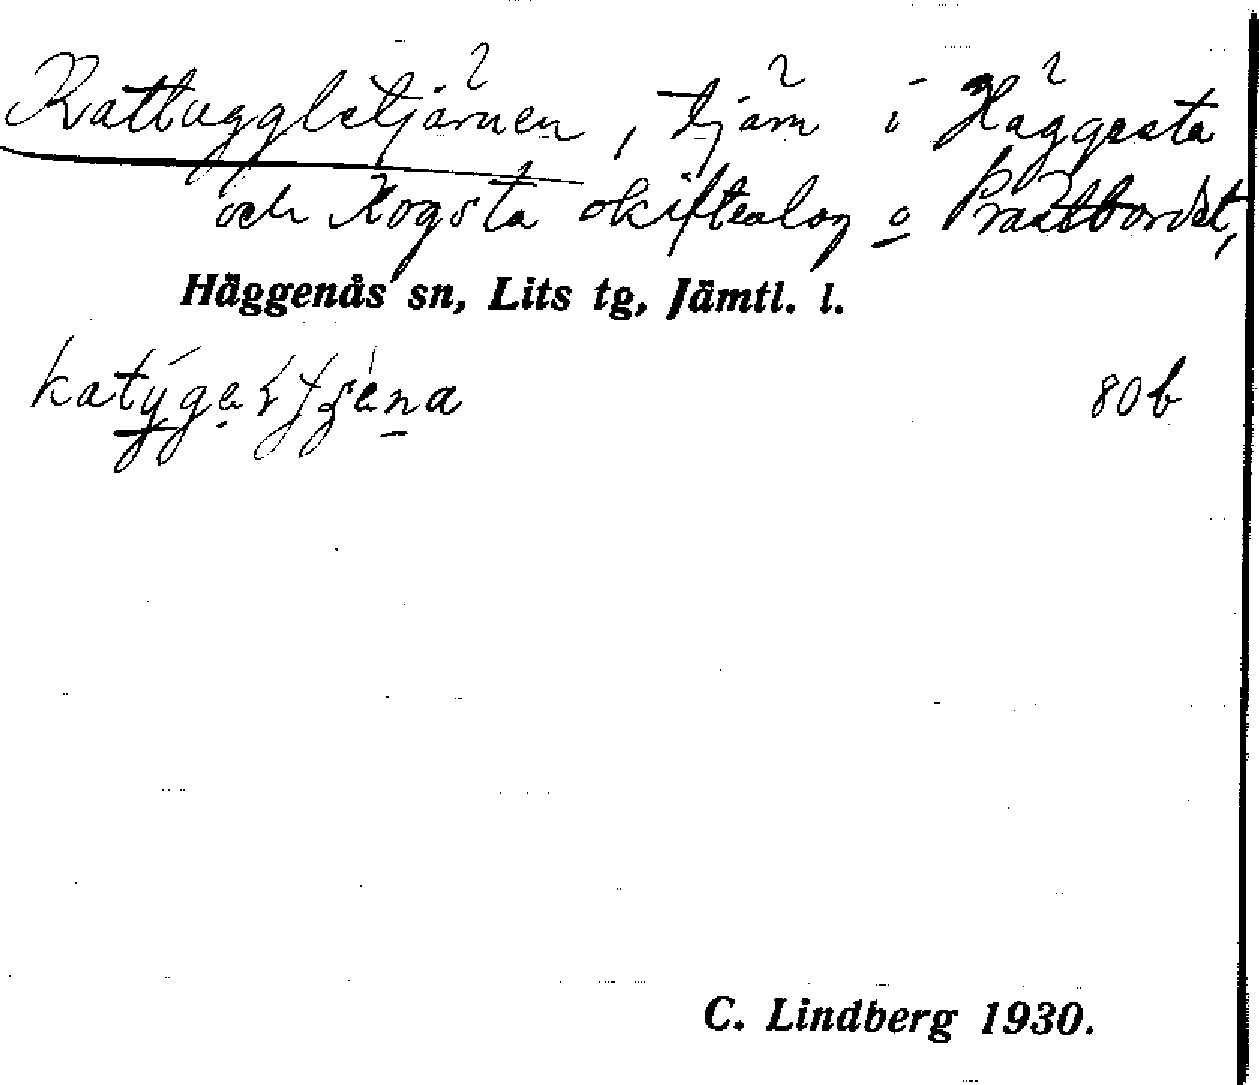 Kattuggletjärnen, tjärn i Häggesta
och Kogsta skifteslag o Prästbordet,
Häggenås sn, Lits tg, Jämtl. l.
80b
C. Lindberg 1930.